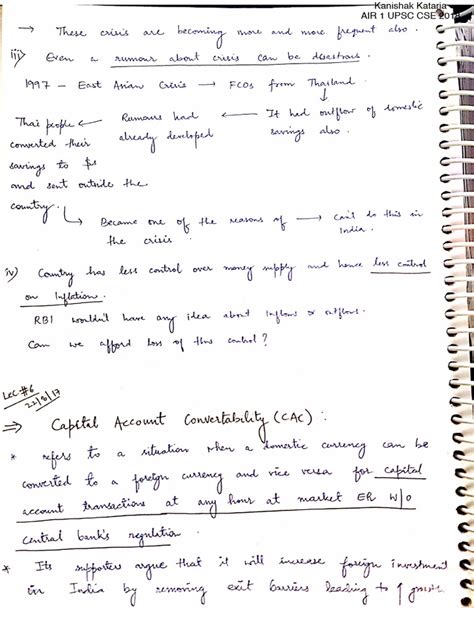 Kanishak Kataria
AIR 1 UPSC CSE 2018
→ These crisis are becoming more and more frequent also.
iii) Even a rumour about crisis can be disastrous.
1997 - East Asian Crisis → FCOs from Thailand.
↓
Thai people ← Rumours had ← It had outflow of domestic
converted their already developed savings also.
savings to $s
and sent outside the
country.
↳ Became one of the reasons of → Can't do this in
the crisis. India.
iv) Country has less control over money supply and hence less control
on Inflation.
RBI wouldn't have any idea about Inflows & outflows.
Can we afford loss of this control?
LEC #6
22/8/17
⇒ Capital Account Convertability (CAC):
* refers to a situation when a domestic currency can be
converted to a foreign currency and vice versa for capital
account transactions at any hour at market ER W/O
central bank's regulation.
* Its supporters argue that it will increase foreign investment
in India by removing exit barriers leading to ↑ growth